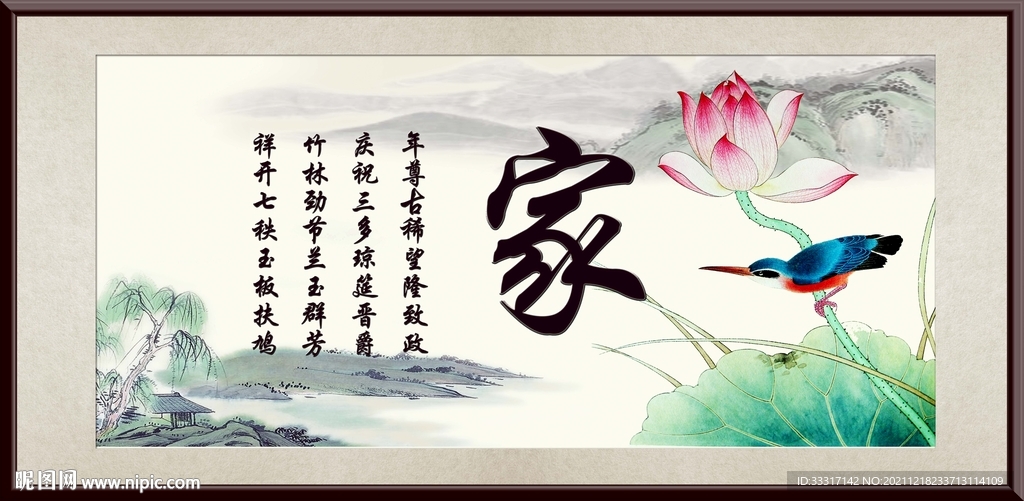 家
年尊古稀望隆致政
庆祝三多琼筵晋爵
竹林劲节兰玉群芳
祥开七秩玉板扶鸠
昵图网 www.nipic.com
ID:33317142 NO:20211218233713114109